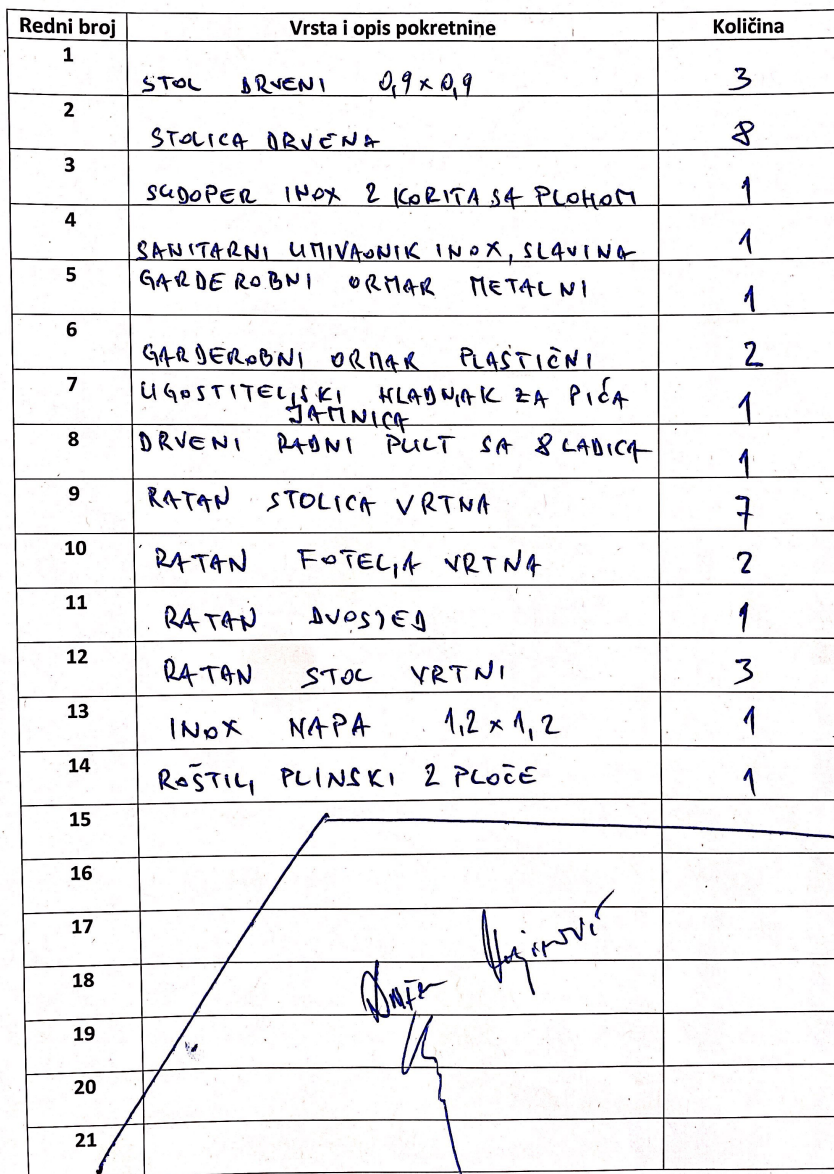 Redni broj Vrsta i opis pokretnine Količina
1 STOL DRVENI 0,9 x 0,9 3
2 STOLICA DRVENA 8
3 SUDOPER INOX 2 KORITA SA PLOHOM 1
4 SANITARNI UMIVAONIK INOX, SLAVINA 1
5 GARDEROBNI ORMAR METALNI 1
6 GARDEROBNI ORMAR PLASTIČNI 2
7 UGOSTITELJSKI HLADNJAK ZA PIĆA
JAMNICA 1
8 DRVENI RADNI PULT SA 8 LADICA 1
9 RATAN STOLICA VRTNA 7
10 RATAN FOTELJA VRTNA 2
11 RATAN DVOSJED 1
12 RATAN STOL VRTNI 3
13 INOX NAPA 1,2 x 1,2 1
14 ROŠTILJ PLINSKI 2 PLOČE 1
15
16
17
18
19
20
21